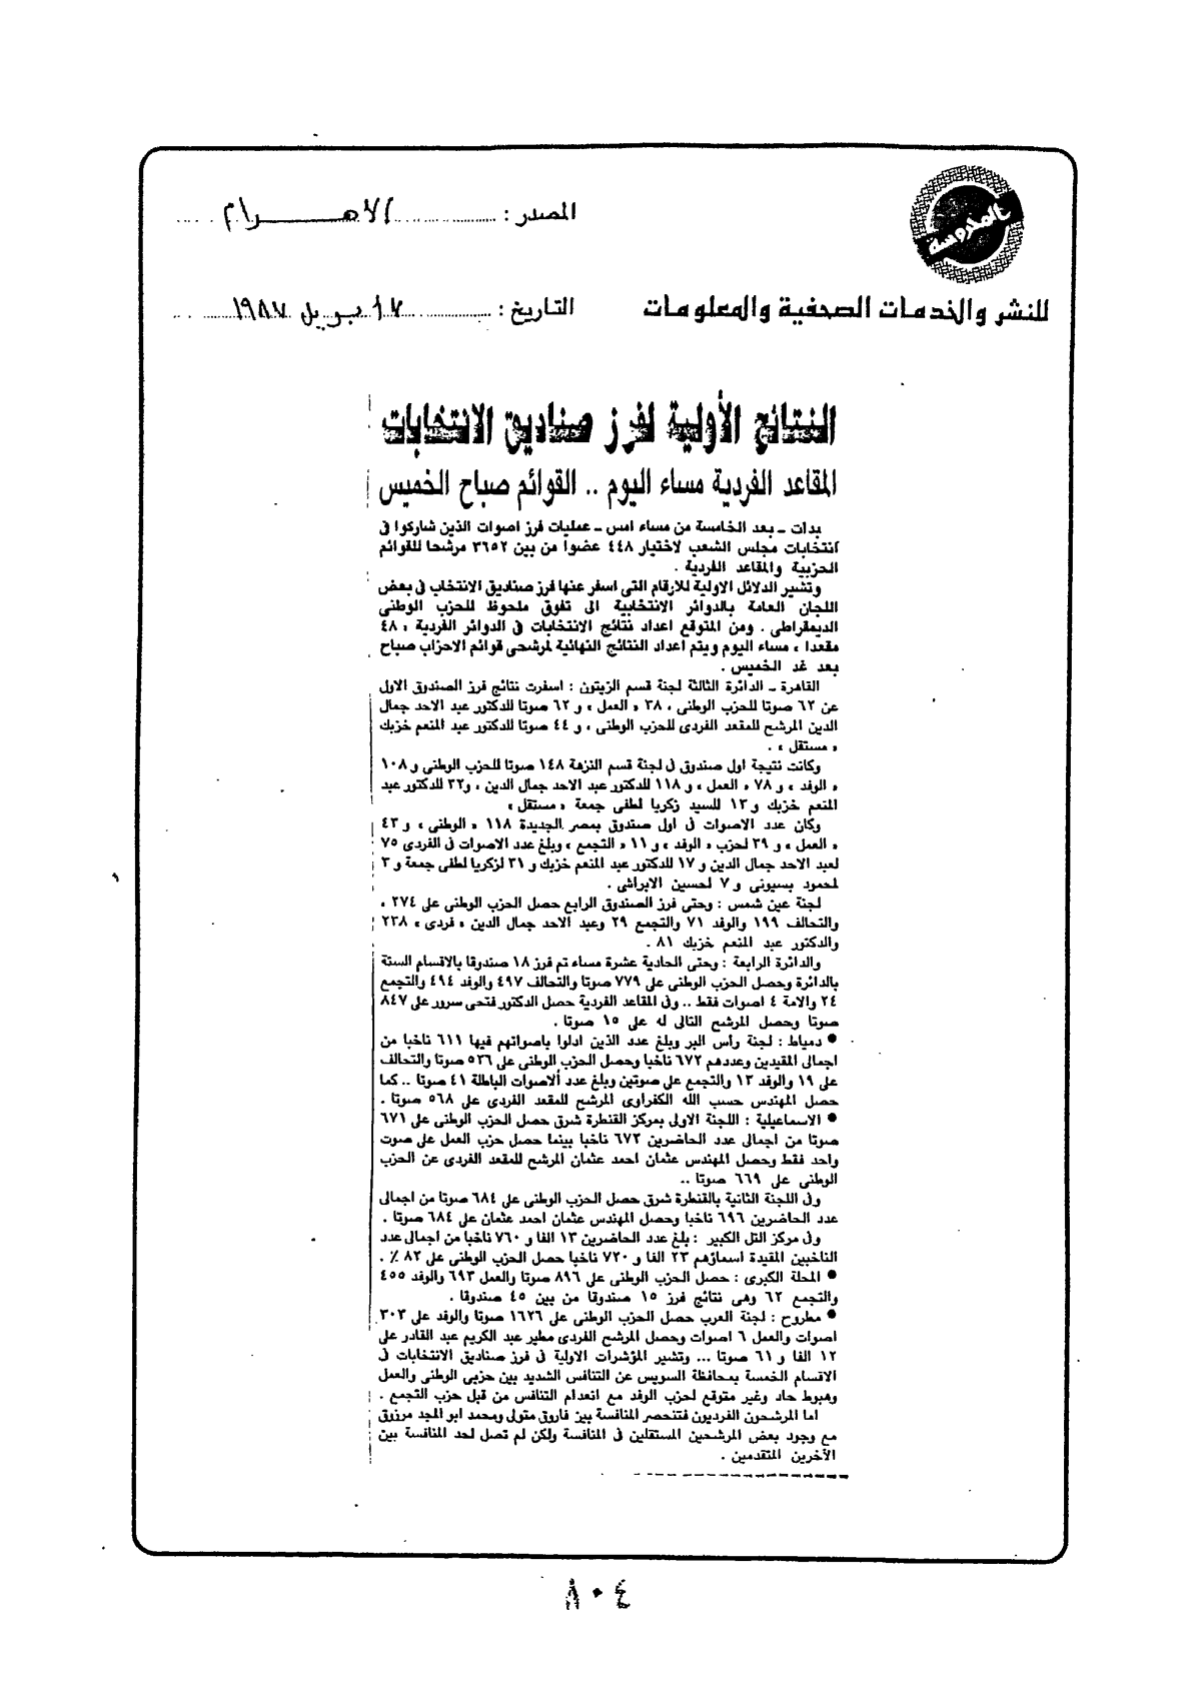 المصدر : الاهرام
المحروسة
للنشر والخدمات الصحفية والمعلومات
التاريخ : ١٩٨٧
النتائج الأولية لفرز صناديق الانتخابات
المقاعد الفردية مساء اليوم .. القوائم صباح الخميس
بدأت ــ بعد الخامسة من مساء امس ــ عمليات فرز اصوات الذين شاركوا فى
انتخابات مجلس الشعب لاختيار ٤٤٨ عضوا من بين ٣٦٥٢ مرشحا للقوائم
الحزبية والمقاعد الفردية .
وتشير الدلائل الاولية للارقام التى اسفر عنها فرز صناديق الانتخاب فى بعض
اللجان العامة بالدوائر الانتخابية الى تفوق ملحوظ للحزب الوطنى
الديمقراطى . ومن المتوقع اعداد نتائج الانتخابات فى الدوائر الفردية « ٤٨
مقعدا » مساء اليوم ويتم اعداد النتائج النهائية لمرشحى قوائم الاحزاب صباح
بعد غد الخميس .
القاهرة ــ الدائرة الثالثة لجنة قسم الزيتون : اسفرت نتائج فرز الصندوق الاول
عن ٦٢ صوتا للحزب الوطنى ، ٣٨ « العمل » و ٦٢ صوتا للدكتور عبد الاحد جمال
الدين المرشح للمقعد الفردى للحزب الوطنى ، و ٤٤ صوتا للدكتور عبد المنعم خزبك
« مستقل » .
وكانت نتيجة اول صندوق فى لجنة قسم النزهة ١٤٨ صوتا للحزب الوطنى و ١٠٨
« الوفد » و ٧٨ « العمل » و ١١٨ للدكتور عبد الاحد جمال الدين ، و٣٢ للدكتور عبد
المنعم خزبك و ١٣ للسيد زكريا لطفى جمعة « مستقل »
وكان عدد الاصوات فى اول صندوق بمصر الجديدة ١١٨ « الوطنى » و ٤٣
« العمل » و ٣٩ لحزب « الوفد » و ١١ « التجمع » وبلغ عدد الاصوات فى الفردى ٧٥
لعبد الاحد جمال الدين و ١٧ للدكتور عبد المنعم خزبك و ٣١ لزكريا لطفى جمعة و ٣
لمحمود بسيونى و ٧ لحسين الابراشى .
لجنة عين شمس : وحتى فرز الصندوق الرابع حصل الحزب الوطنى على ٢٧٤ ،
والتحالف ١٩٩ والوفد ٧١ والتجمع ٢٩ وعبد الاحد جمال الدين « فردى » ٢٣٨
والدكتور عبد المنعم خزبك ٨١ .
والدائرة الرابعة : وحتى الحادية عشرة مساء تم فرز ١٨ صندوقا بالاقسام الستة
بالدائرة وحصل الحزب الوطنى على ٧٧٩ صوتا والتحالف ٤٩٧ والوفد ٤٩٤ والتجمع
٢٤ والامة ٤ اصوات فقط .. وفى المقاعد الفردية حصل الدكتور فتحى سرور على ٨٤٧
صوتا وحصل المرشح التالى له على ١٥ صوتا .
● دمياط : لجنة رأس البر وبلغ عدد الذين ادلوا باصواتهم فيها ٦١١ ناخبا من
اجمالى المقيدين وعددهم ٦٧٢ ناخبا وحصل الحزب الوطنى على ٥٣٦ صوتا والتحالف
على ١٩ والوفد ١٣ والتجمع على صوتين وبلغ عدد الأصوات الباطلة ٤١ صوتا .. كما
حصل المهندس حسب الله الكفراوى المرشح للمقعد الفردى على ٥٦٨ صوتا .
● الاسماعيلية : اللجنة الاولى بمركز القنطرة شرق حصل الحزب الوطنى على ٦٧١
صوتا من اجمالى عدد الحاضرين ٦٧٢ ناخبا بينما حصل حزب العمل على صوت
واحد فقط وحصل المهندس عثمان احمد عثمان المرشح للمقعد الفردى عن الحزب
الوطنى على ٦٦٩ صوتا ..
وفى اللجنة الثانية بالقنطرة شرق حصل الحزب الوطنى على ٦٨٤ صوتا من اجمالى
عدد الحاضرين ٦٩٦ ناخبا وحصل المهندس عثمان احمد عثمان على ٦٨٤ صوتا .
وفى مركز التل الكبير : بلغ عدد الحاضرين ١٣ الفا و ٧٦٠ ناخبا من اجمالى عدد
الناخبين المقيدة اسماؤهم ٢٣ الفا و ٧٢٠ ناخبا حصل الحزب الوطنى على ٨٢ ٪ .
● المحلة الكبرى : حصل الحزب الوطنى على ٨٩٦ صوتا والعمل ٦٩٣ والوفد ٤٥٥
والتجمع ٦٢ وهى نتائج فرز ١٥ صندوقا من بين ٤٥ صندوقا .
● مطروح : لجنة العرب حصل الحزب الوطنى على ١٦٢٦ صوتا والوفد على ٣٠٣
اصوات والعمل ٦ اصوات وحصل المرشح الفردى مطير عبد الكريم عبد القادر على
١٢ الفا و ٦١ صوتا ... وتشير المؤشرات الاولية فى فرز صناديق الانتخابات فى
الاقسام الخمسة بمحافظة السويس عن التنافس الشديد بين حزبى الوطنى والعمل
وهبوط حاد وغير متوقع لحزب الوفد مع انعدام التنافس من قبل حزب التجمع .
اما المرشحون الفرديون فتنحصر المنافسة بين فاروق متولى ومحمد ابو المجد مرزوق
مع وجود بعض المرشحين المستقلين فى المنافسة ولكن لم تصل لحد المنافسة بين
الآخرين المتقدمين .
٨٠٤